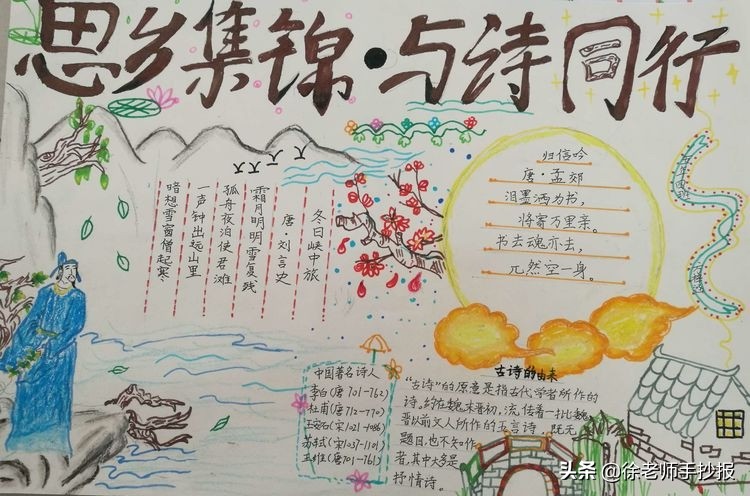 思乡集锦·与诗同行
冬日峡中旅
唐·刘言史
霜月明明雪复残
孤舟夜泊使君滩
一声钟出远山里
暗想雪窗僧起寒
归信吟
唐·孟郊
泪墨洒为书，
将寄万里亲。
书去魂亦去，
兀然空一身。
中国著名诗人
李白(唐701-762)
杜甫(唐712-770)
王安石(宋1021-1086)
苏轼(宋1037-1101)
王维(唐701-761)
古诗的由来
“古诗”的原意是指古代学者所作的
诗，约在魏末晋初，流传着一批魏
晋以前文人所作的五言诗，既无
题目，也不知作
者，其中大多是
抒情诗。
头条@徐老师手抄报